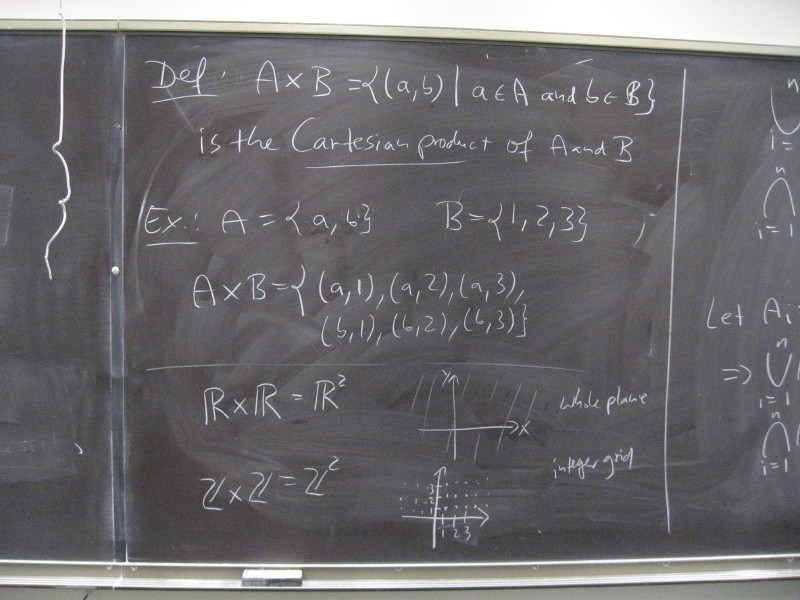 Def: A×B = {(a,b) | a∈A and b∈B}
is the Cartesian product of A and B
Ex.: A = {a, b} B = {1, 2, 3}
A×B = { (a,1), (a,2), (a,3),
(b,1), (b,2), (b,3)}
ℝ×ℝ = ℝ² y x whole plane
ℤ×ℤ = ℤ² 3 2 1 1 2 3 integer grid
n
∪
i=
n
∩
i=1
Let Ai
n
⇒ ∪
i=1
n
∩
i=1